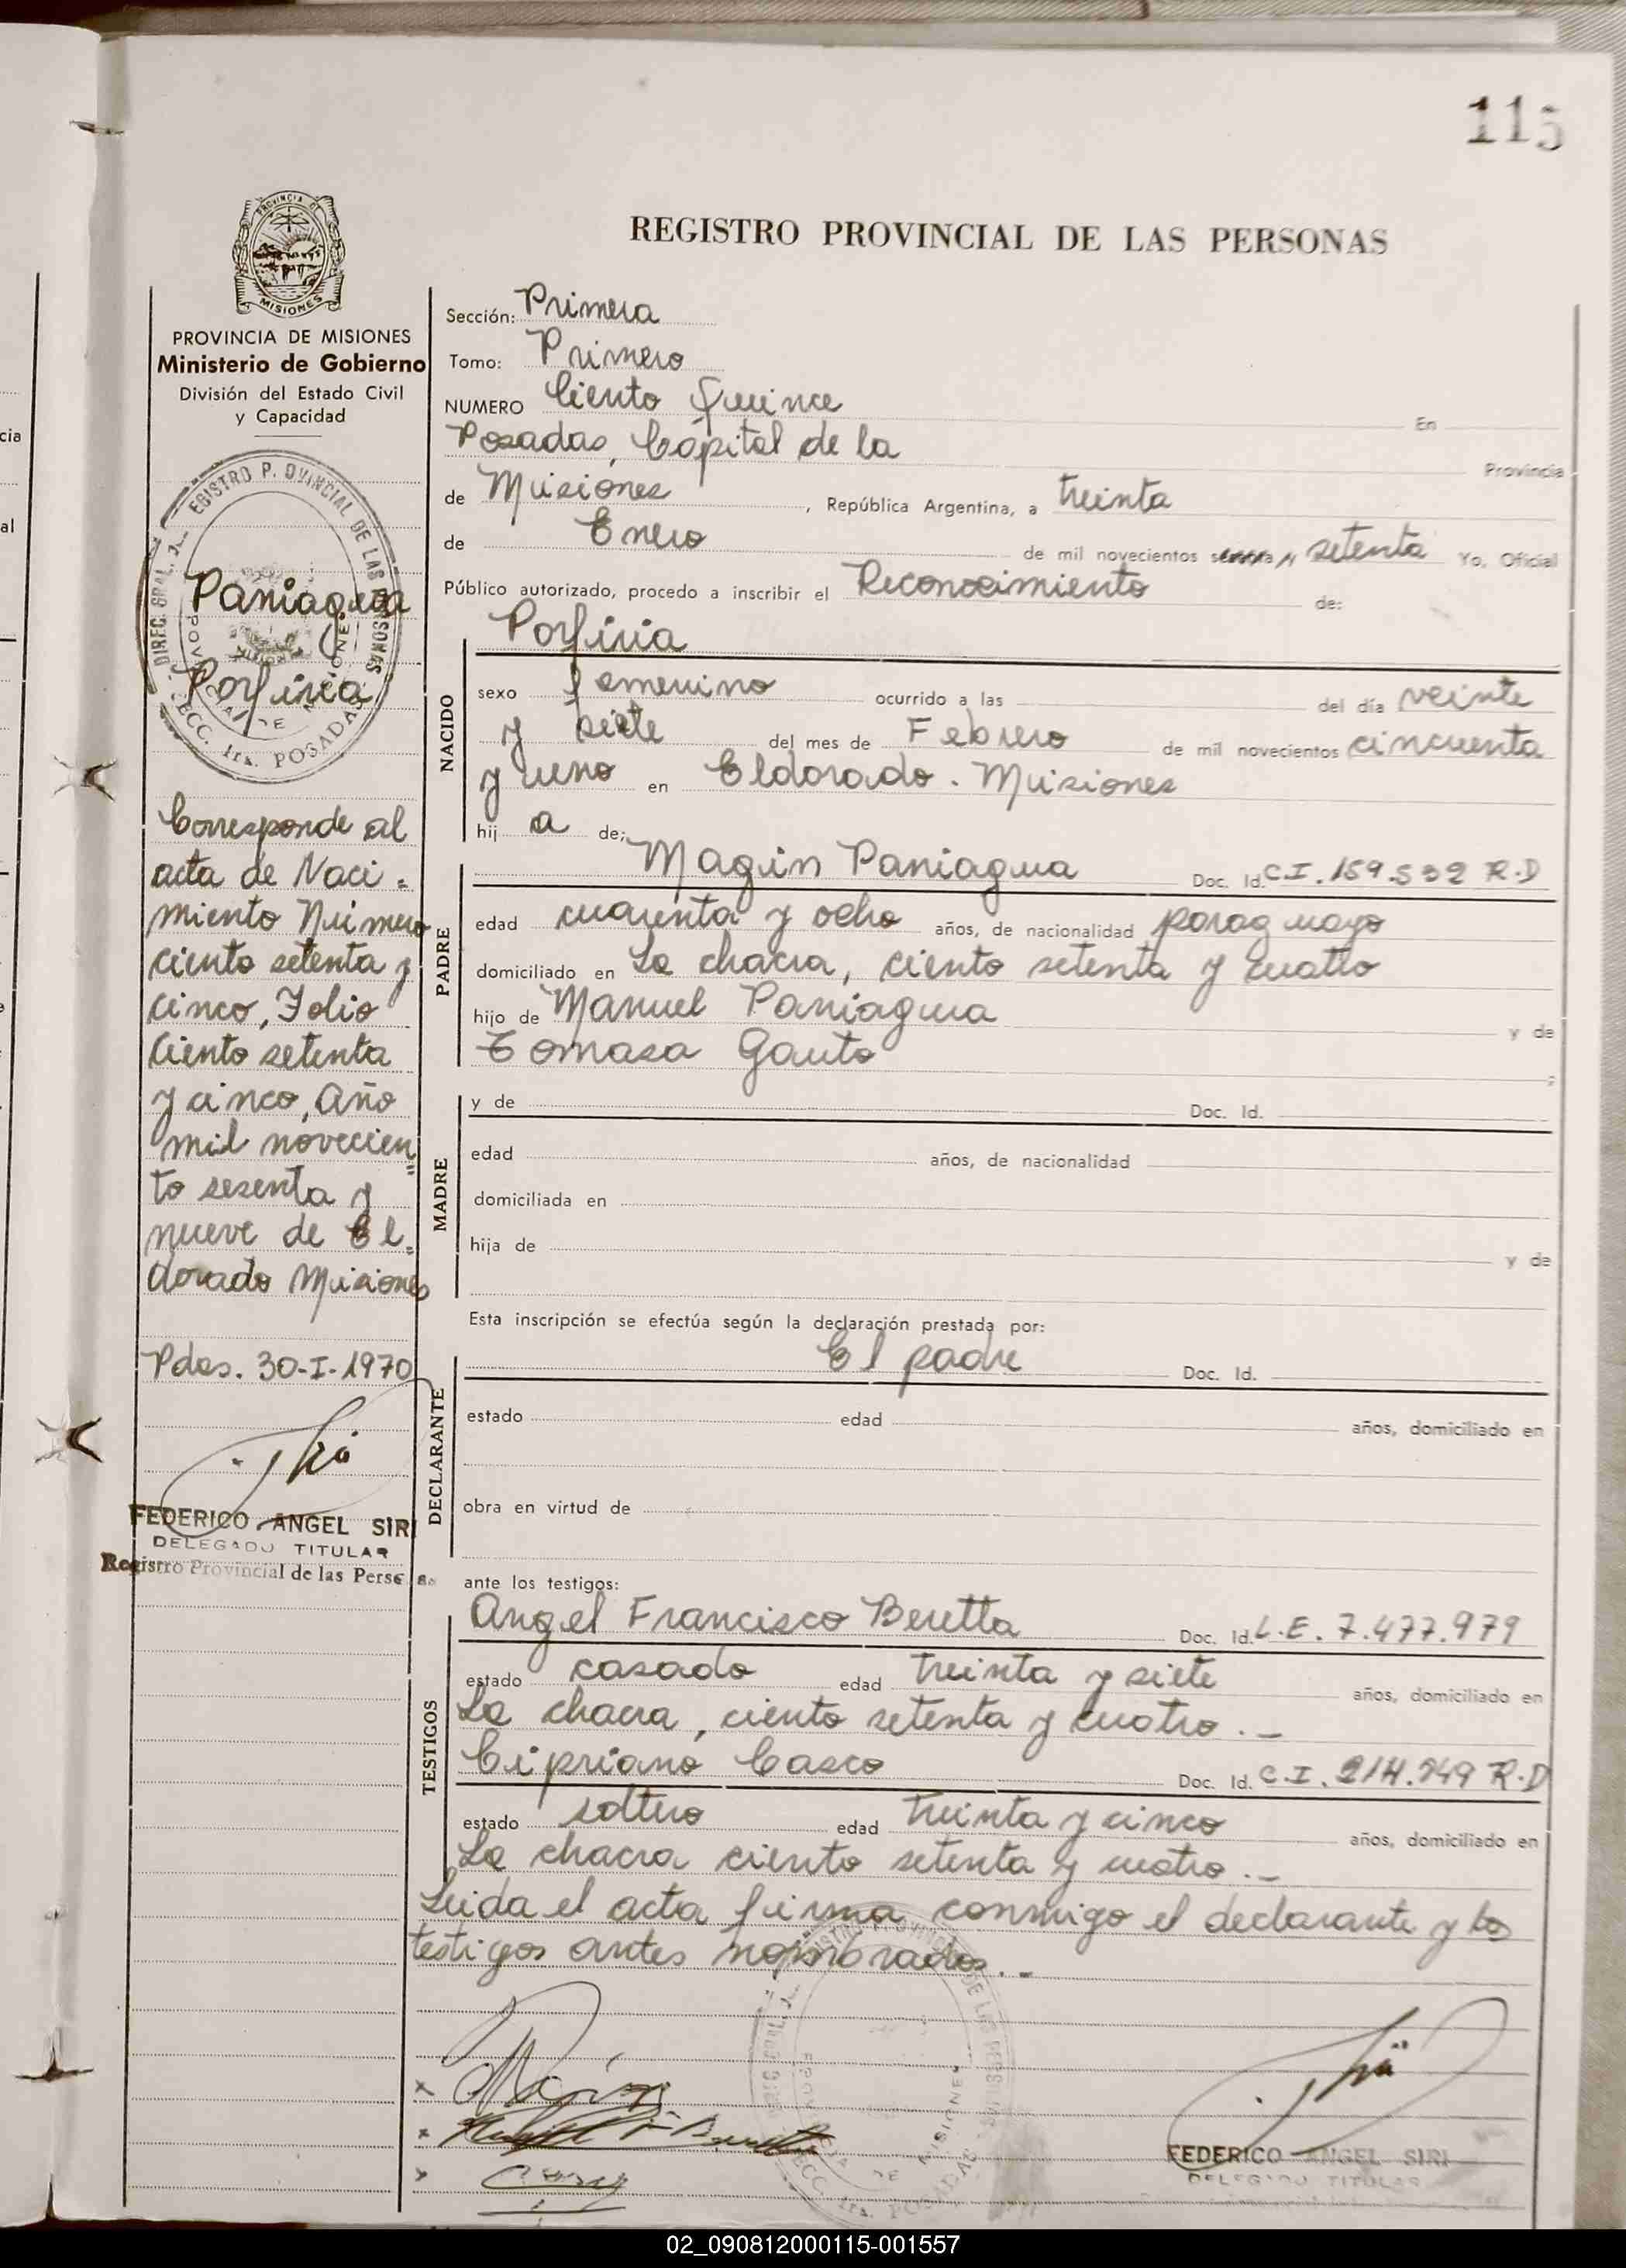 115
REGISTRO PROVINCIAL DE LAS PERSONAS
PROVINCIA DE MISIONES
Ministerio de Gobierno
División del Estado Civil
y Capacidad
Paniagua
Porfiria
Corresponde al
acta de Naci=
miento Número
ciento setenta y
cinco, Folio
Ciento setenta
y cinco, Año
mil novecien=
to sesenta y
nueve de El=
dorado Misiones
Pdas. 30-I-1970
FEDERICO ANGEL SIRI
DELEGADO TITULAR
Registro Provincial de las Perso as
Sección: Primera
Tomo: Primero
NUMERO Ciento Quince En
Posadas, Capital de la Provincia
de Misiones, República Argentina, a treinta
de Enero de mil novecientos setenta Yo, Oficial
Público autorizado, procedo a inscribir el Reconocimiento de:
Porfiria
NACIDO
sexo femenino ocurrido a las del día veinte
y siete del mes de Febrero de mil novecientos cincuenta
y uno en Eldorado. Misiones
hij a de:
PADRE
Magin Paniagua Doc. Id. C.I. 159.532 R.D
edad cuarenta y ocho años, de nacionalidad paraguayo
domiciliado en La chacra, ciento setenta y cuatro
hijo de Manuel Paniagua y de
Tomasa Gauto ;
MADRE
y de Doc. Id.
edad años, de nacionalidad
domiciliada en
hija de y de
Esta inscripción se efectúa según la declaración prestada por:
DECLARANTE
El padre Doc. Id.
estado edad años, domiciliado en
obra en virtud de
ante los testigos:
TESTIGOS
Angel Francisco Beretta Doc. Id. L.E. 7.477.979
estado casado edad treinta y siete años, domiciliado en
La chacra, ciento setenta y cuatro.-
Cipriano Casco Doc. Id. C.I. 214.749 R.D
estado soltero edad treinta y cinco años, domiciliado en
La chacra ciento setenta y cuatro.-
Leida el acta firma conmigo el declarante y los
testigos antes nombrados.-
FEDERICO ANGEL SIRI
DELEGADO TITULAR
02_090812000115-001557